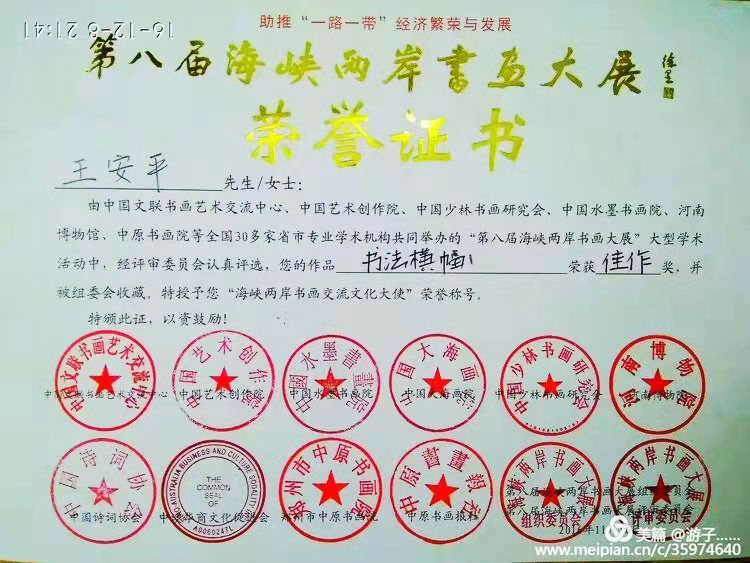 16-12-8 21:41
助推“一路一带”经济繁荣与发展
第八届海峡两岸书画大展
荣誉证书
王安平 先生/女士：
由中国文联书画艺术交流中心、中国艺术创作院、中国少林书画研究会、中国水墨书画院、河南
博物馆、中原书画院等全国30多家省市专业学术机构共同举办的“第八届海峡两岸书画大展”大型学术
活动中，经评审委员会认真评选，您的作品 书法横幅 荣获 佳作 奖，并
被组委会收藏。特授予您“海峡两岸书画交流文化大使”荣誉称号。
特颁此证，以资鼓励！
中国文联书画艺术交流中心 中国艺术创作院 中國水墨書畫院 中国大海画院 中国少林书画研究会 河南博物院
中国文联书画艺术交流中心 中国艺术创作院 中国水墨书画院 中国大海画院 中国少林书画研究会 河南博物院
中国诗词协会 THE COMMON SEAL OF 郑州市中原书画院 中原書畫報社 海峡两岸书画大展 组织委员会 海峡两岸书画大展 评审委员会
第八届海峡两岸书画大展组织委员会
第八届海峡两岸书画大展评审委员会
中国诗词协会 郑州市中原书画院 中原书画报社
美篇 @游子......
www.meipian.cn/c/35974640